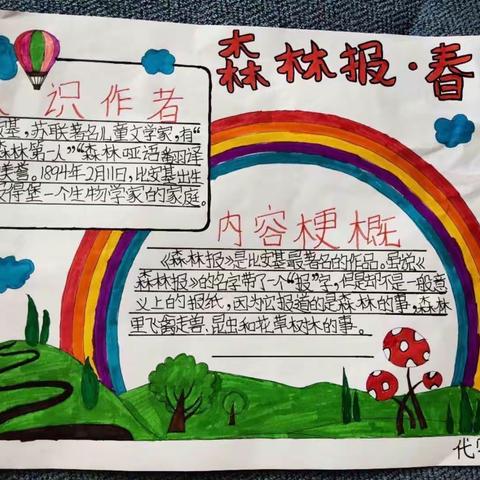 森林报·春
识作者
基,苏联著名儿童文学家,有“
森林第一人”“森林哑语翻译
美誉。1894年2月11日,比安基出生
彼得堡一个生物学家的家庭。
内容梗概
《森林报》是比安基最著名的作品。虽说《
森林报》的名字带了个“报”字,但是却不是一般意
义上的报纸,因为它报道的是森林的事,森林
里飞禽走兽、昆虫和花草树木的事。
代